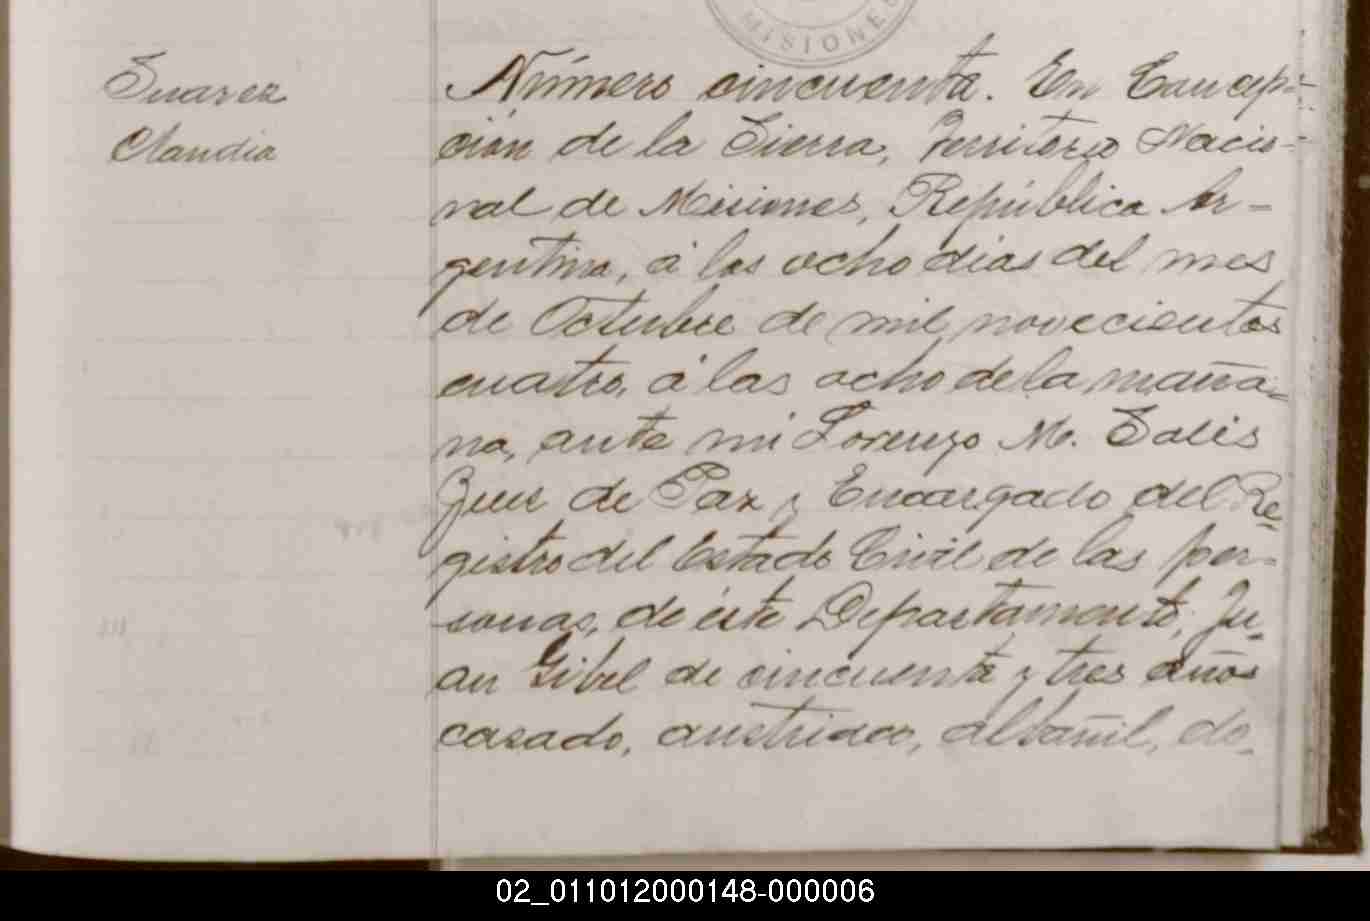 MISIONES
Suarez
Claudia
Número cincuenta. En Concep-
ción de la Sierra, Territorio Nacio-
nal de Misiones, República Ar-
gentina, á los ocho dias del mes
de Octubre de mil novecientos
cuatro, á las ocho de la maña-
na, ante mi Lorenzo M. Solis
Juez de Paz y Encargado del Re-
gistro del Estado Civil de las per-
sonas, de éste Departamento, Ju-
an Gibel de cincuenta y tres años
casado, austriaco, albañil, do-
02_011012000148-000006